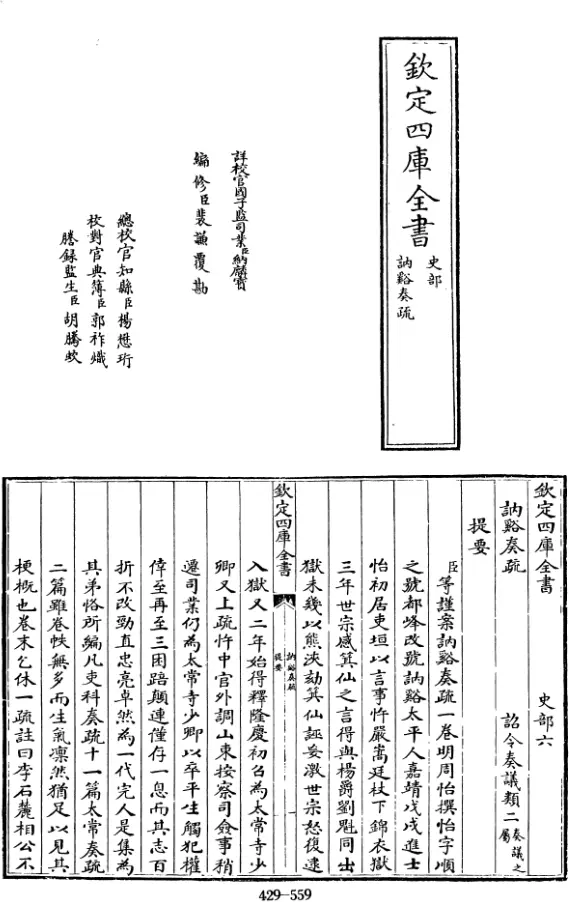 欽定四庫全書
史部
訥谿奏疏
詳校官國子監司業臣納麟寶
編修臣裴謙覆勘
總校官知縣臣楊懋珩
校對官典簿臣郭祚熾
謄錄監生臣胡騰蛟
欽定四庫全書
史部六
訥谿奏疏
詔令奏議類二奏議之屬
提要
臣等謹案訥谿奏疏一卷明周怡撰怡字順
之號都峰改號訥谿太平人嘉靖戊戌進士
怡初居吏垣以言事忤嚴嵩廷杖下錦衣獄
三年世宗感箕仙之言得與楊爵劉魁同出
獄未幾以熊浹劾箕仙誣妄激世宗怒復逮
欽定四庫全書
訥谿奏疏
提要
一
入獄又二年始得釋隆慶初召為太常寺少
卿又上疏忤中官外調山東按察司僉事稍
遷司業仍為太常寺少卿以卒平生觸犯權
倖至再至三困踣顛連僅存一息而其志百
折不改勁直忠亮卓然為一代完人是集為
其弟恪所編凡吏科奏疏十一篇太常奏疏
二篇雖卷帙無多而生氣凜然猶足以見其
梗概也卷末乞休一疏註曰李石麓相公不
429-559